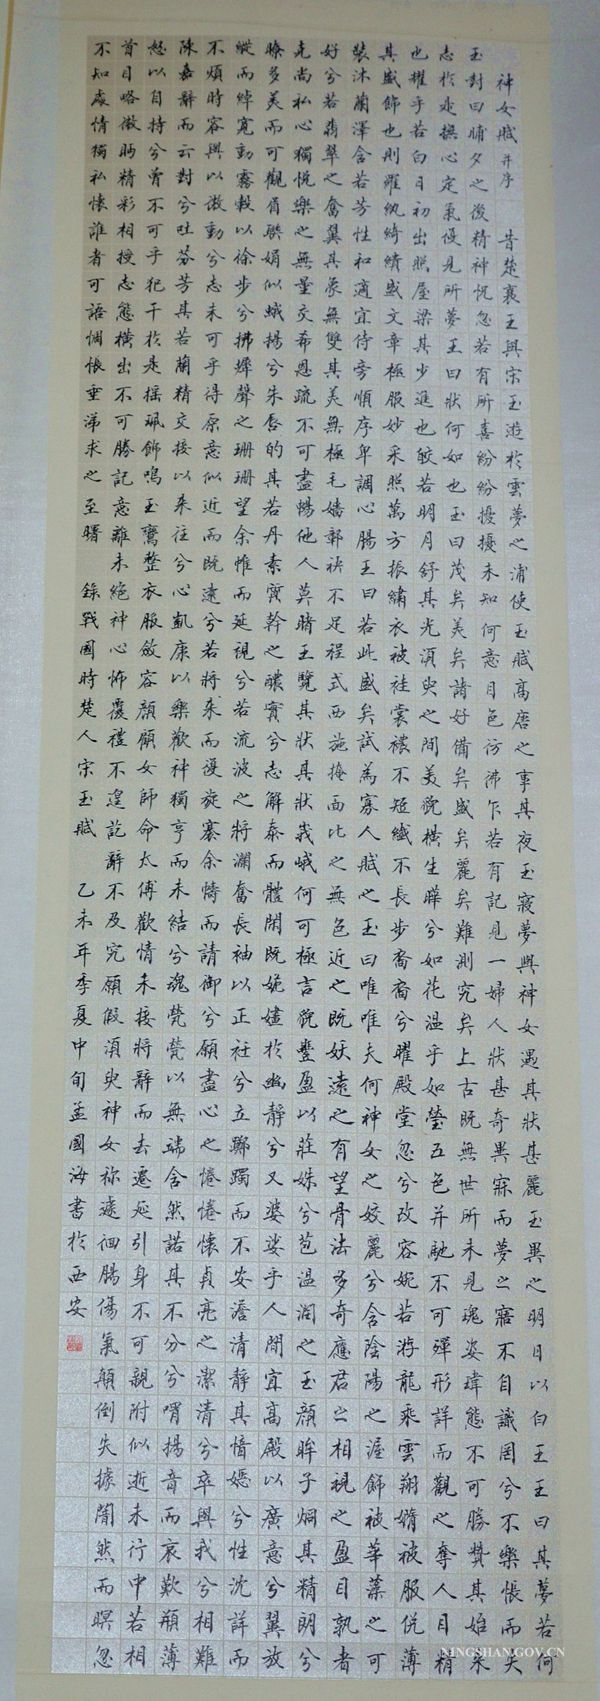 神女賦并序 昔楚襄王與宋玉遊於雲夢之浦使玉賦高唐之事其夜玉寢夢與神女遇其狀甚麗玉異之明日以白王王曰其夢若何
玉對曰晡夕之後精神怳忽若有所喜紛紛擾擾未知何意目色彷彿乍若有記見一婦人狀甚奇異寐而夢之寤不自識罔兮不樂悵而失
志於是撫心定氣復見所夢王曰狀何如也玉曰茂矣美矣諸好備矣盛矣麗矣難測究矣上古既無世所未見瑰姿瑋態不可勝贊其始來
也耀乎若白日初出照屋梁其少進也皎若明月舒其光須臾之間美貌橫生曄兮如花溫乎如瑩五色并馳不可殫形詳而觀之奪人目精
其盛飾也則羅紈綺繢盛文章極服妙采照萬方振繡衣被袿裳襛不短纖不長步裔裔兮曜殿堂忽兮改容婉若游龍乘雲翔嫷被服侻薄
裝沐蘭澤含若芳性和適宜侍旁順序卑調心腸王曰若此盛矣試為寡人賦之玉曰唯唯夫何神女之姣麗兮含陰陽之渥飾被華藻之可
好兮若翡翠之奮翼其象無雙其美無極毛嬙鄣袂不足程式西施掩面比之無色近之既妖遠之有望骨法多奇應君之相視之盈目孰者
克尚私心獨悅樂之無量交希恩疏不可盡暢他人莫睹王覽其狀其狀峩峩何可極言貌豐盈以莊姝兮苞溫潤之玉顏眸子炯其精朗兮
瞭多美而可觀眉聯娟似蛾揚兮朱唇的其若丹素質幹之醲實兮志解泰而體閑既姽嫿於幽靜兮又婆娑乎人間宜高殿以廣意兮翼放
縱而綽寬動霧縠以徐步兮拂墀聲之珊珊望余帷而延視兮若流波之將瀾奮長袖以正衽兮立躑躅而不安澹清靜其愔嫕兮性沈詳而
不煩時容與以微動兮志未可乎得原意似近而既遠兮若將來而復旋褰余幬而請御兮願盡心之惓惓懷貞亮之潔清兮卒與我兮相難
陳嘉辭而云對兮吐芬芳其若蘭精交接以來往兮心凱康以樂歡神獨亨而未結兮魂煢煢以無端含然諾其不分兮喟揚音而哀歎頩薄
怒以自持兮曾不可乎犯干於是搖珮飾鳴玉鸞整衣服斂容顏顧女師命太傅歡情未接將辭而去遷延引身不可親附似逝未行中若相
首目略微眄精彩相授志態橫出不可勝記意離未絕神心怖覆禮不遑訖辭不及究願假須臾神女稱遽徊腸傷氣顛倒失據闇然而暝忽
不知處情獨私懷誰者可語惆悵垂涕求之至曙 錄戰國時楚人宋玉賦 乙未年季夏中旬孟國海書於西安
NINGSHAN.GOV.CN